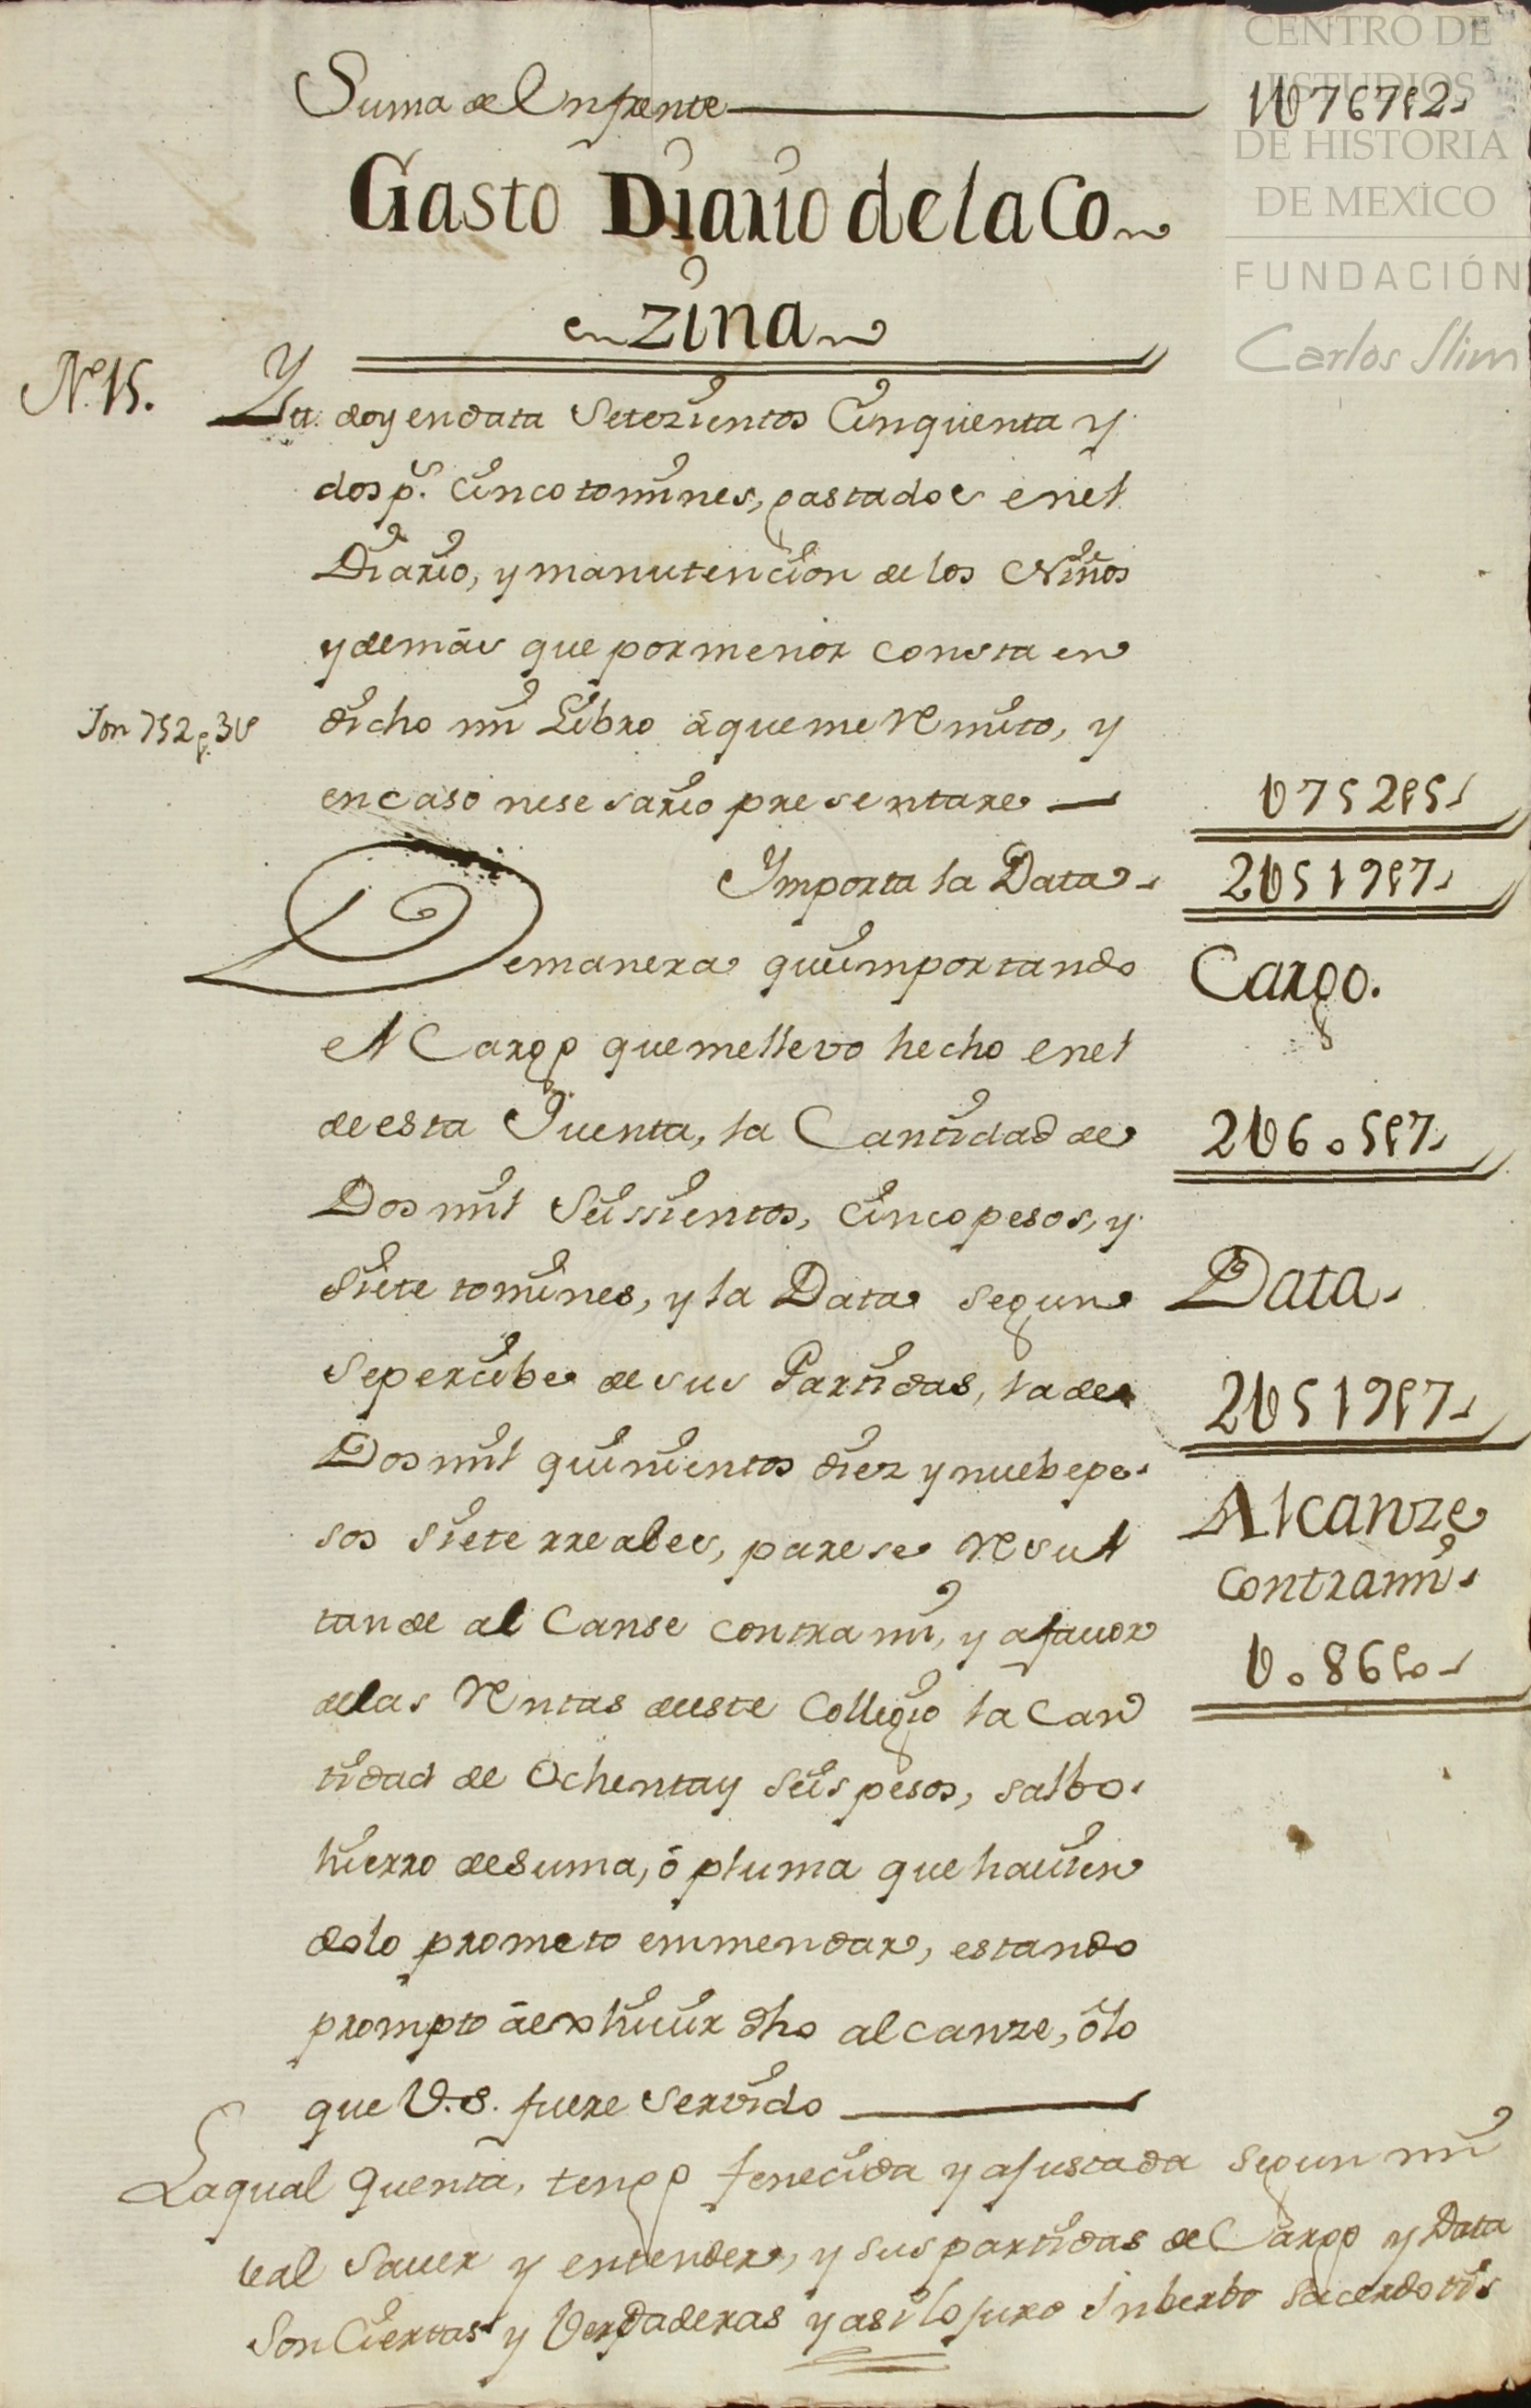 Suma del Enfrente 1U767p2
Gasto Diario de la Co
zina
No. 15. Ytt. doy en data Setezientos Cinquenta y
dos ps. Cinco tomines, gastados en el
Diario, y manutencion de los Niños
y demás que por menor consta en
Son 752 p. 3U dicho mi Libro á que me Remito, y
en caso nesesario presentare U752p5
Importa la Data 2U519p7
De manera que importando
el Cargo que me llevo hecho en el
de esta Quenta, la Cantidad de
Dos mil Seissientos, Cinco pesos, y
Siete tomines, y la Data segun
se percibe de sus Partidas, la de
Dos mil quinientos diez y nuebe pe
sos siete rreales, parese Resul
tan de al Canse contra mi, y a favor
de las Rentas de este Collegio la Can
tidad de Ochenta y seis pesos, salbo
hierro de suma, ó pluma que havien
dolo prometo enmendar, estando
prompto á exhivir dho alcanze, ó lo
que V.S. fuere Servido
Cargo.
2U605p7
Data
2U519p7
Alcanze
contra mi
U086p0
La qual Quenta, tengo fenecida y ajustada segun mi
leal Saver y entender, y sus partidas de Cargo y Data
Son Ciertas y Verdaderas y asi lo juro Inberbo Sacerdotis
CENTRO DE
ESTUDIOS
DE HISTORIA
DE MEXICO
FUNDACIÓN
Carlos Slim